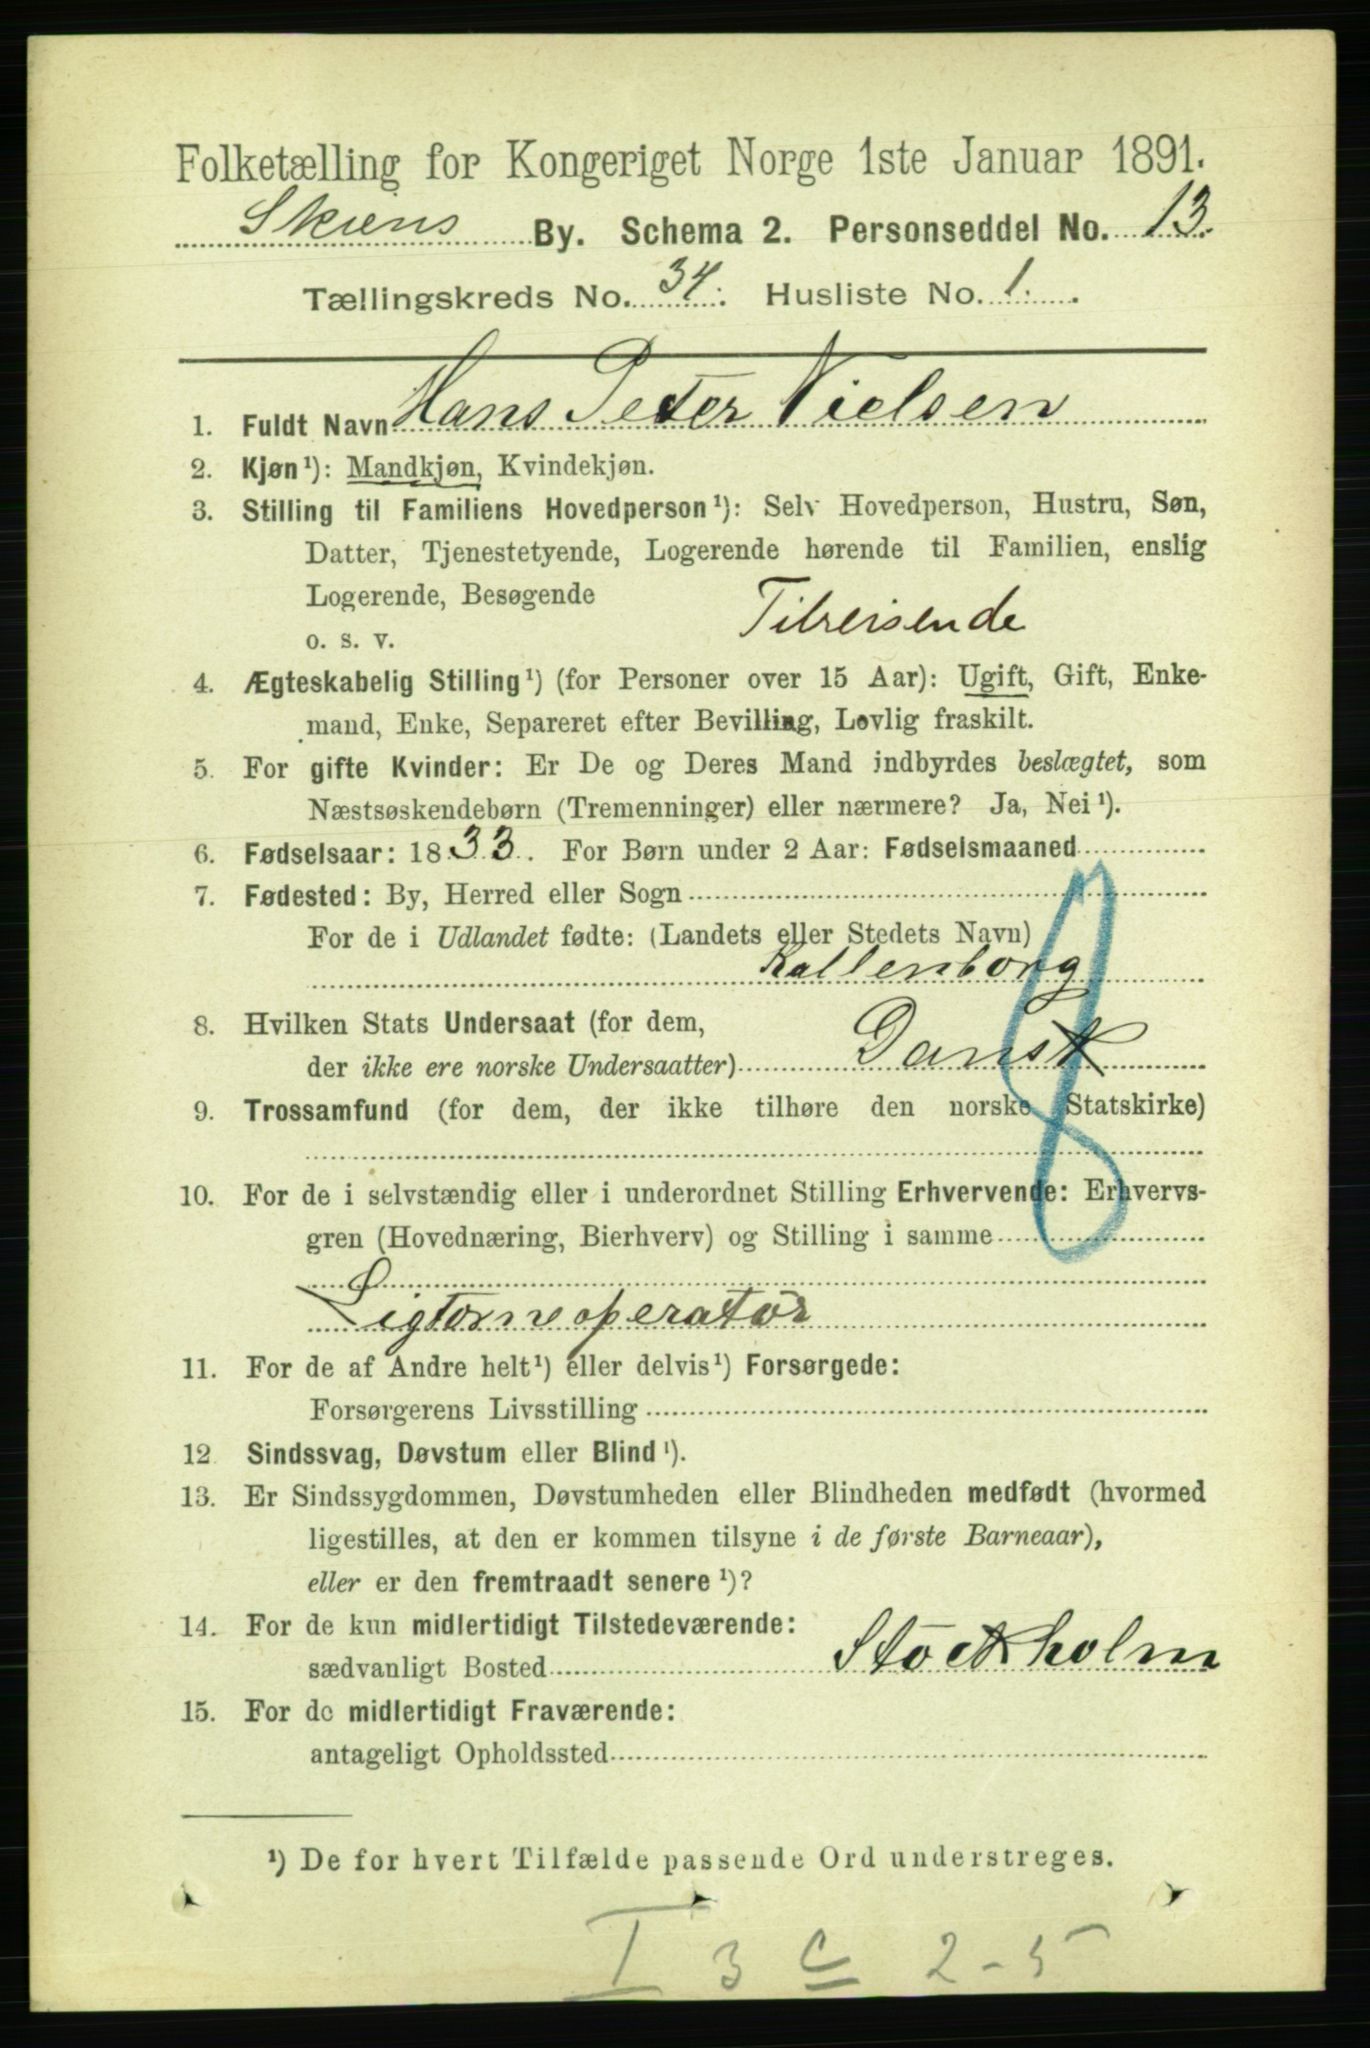 Folketælling for Kongeriget Norge 1ste Januar 1891.
Skiens By. Schema 2. Personseddel No. 13.
Tællingskreds No. 34. Husliste No. 1.
1. Fuldt Navn Hans Peter Nielsen
2. Kjøn¹): Mandkjøn, Kvindekjøn.
3. Stilling til Familiens Hovedperson¹): Selv Hovedperson, Hustru, Søn,
Datter, Tjenestetyende, Logerende hørende til Familien, enslig
Logerende, Besøgende
o. s. v. Tilreisende
4. Ægteskabelig Stilling¹) (for Personer over 15 Aar): Ugift, Gift, Enke-
mand, Enke, Separeret efter Bevilling, Lovlig fraskilt.
5. For gifte Kvinder: Er De og Deres Mand indbyrdes beslægtet, som
Næstsøskendebørn (Tremenninger) eller nærmere? Ja, Nei¹).
6. Fødselsaar: 1833. For Børn under 2 Aar: Fødselsmaaned
7. Fødested: By, Herred eller Sogn
For de i Udlandet fødte: (Landets eller Stedets Navn)
Kallenborg
8. Hvilken Stats Undersaat (for dem,
der ikke ere norske Undersaatter) Dansk
9. Trossamfund (for dem, der ikke tilhøre den norske Statskirke)
10. For de i selvstændig eller i underordnet Stilling Erhvervende: Erhvervs-
gren (Hovednæring, Bierhverv) og Stilling i samme
Ligtorneoperatør
11. For de af Andre helt¹) eller delvis¹) Forsørgede:
Forsørgerens Livsstilling
12. Sindssvag, Døvstum eller Blind¹).
13. Er Sindssygdommen, Døvstumheden eller Blindheden medfødt (hvormed
ligestilles, at den er kommen tilsyne i de første Barneaar),
eller er den fremtraadt senere¹)?
14. For de kun midlertidigt Tilstedeværende:
sædvanligt Bosted Stockholm
15. For de midlertidigt Fraværende:
antageligt Opholdssted
¹) De for hvert Tilfælde passende Ord understreges.
I 3 C 2-5